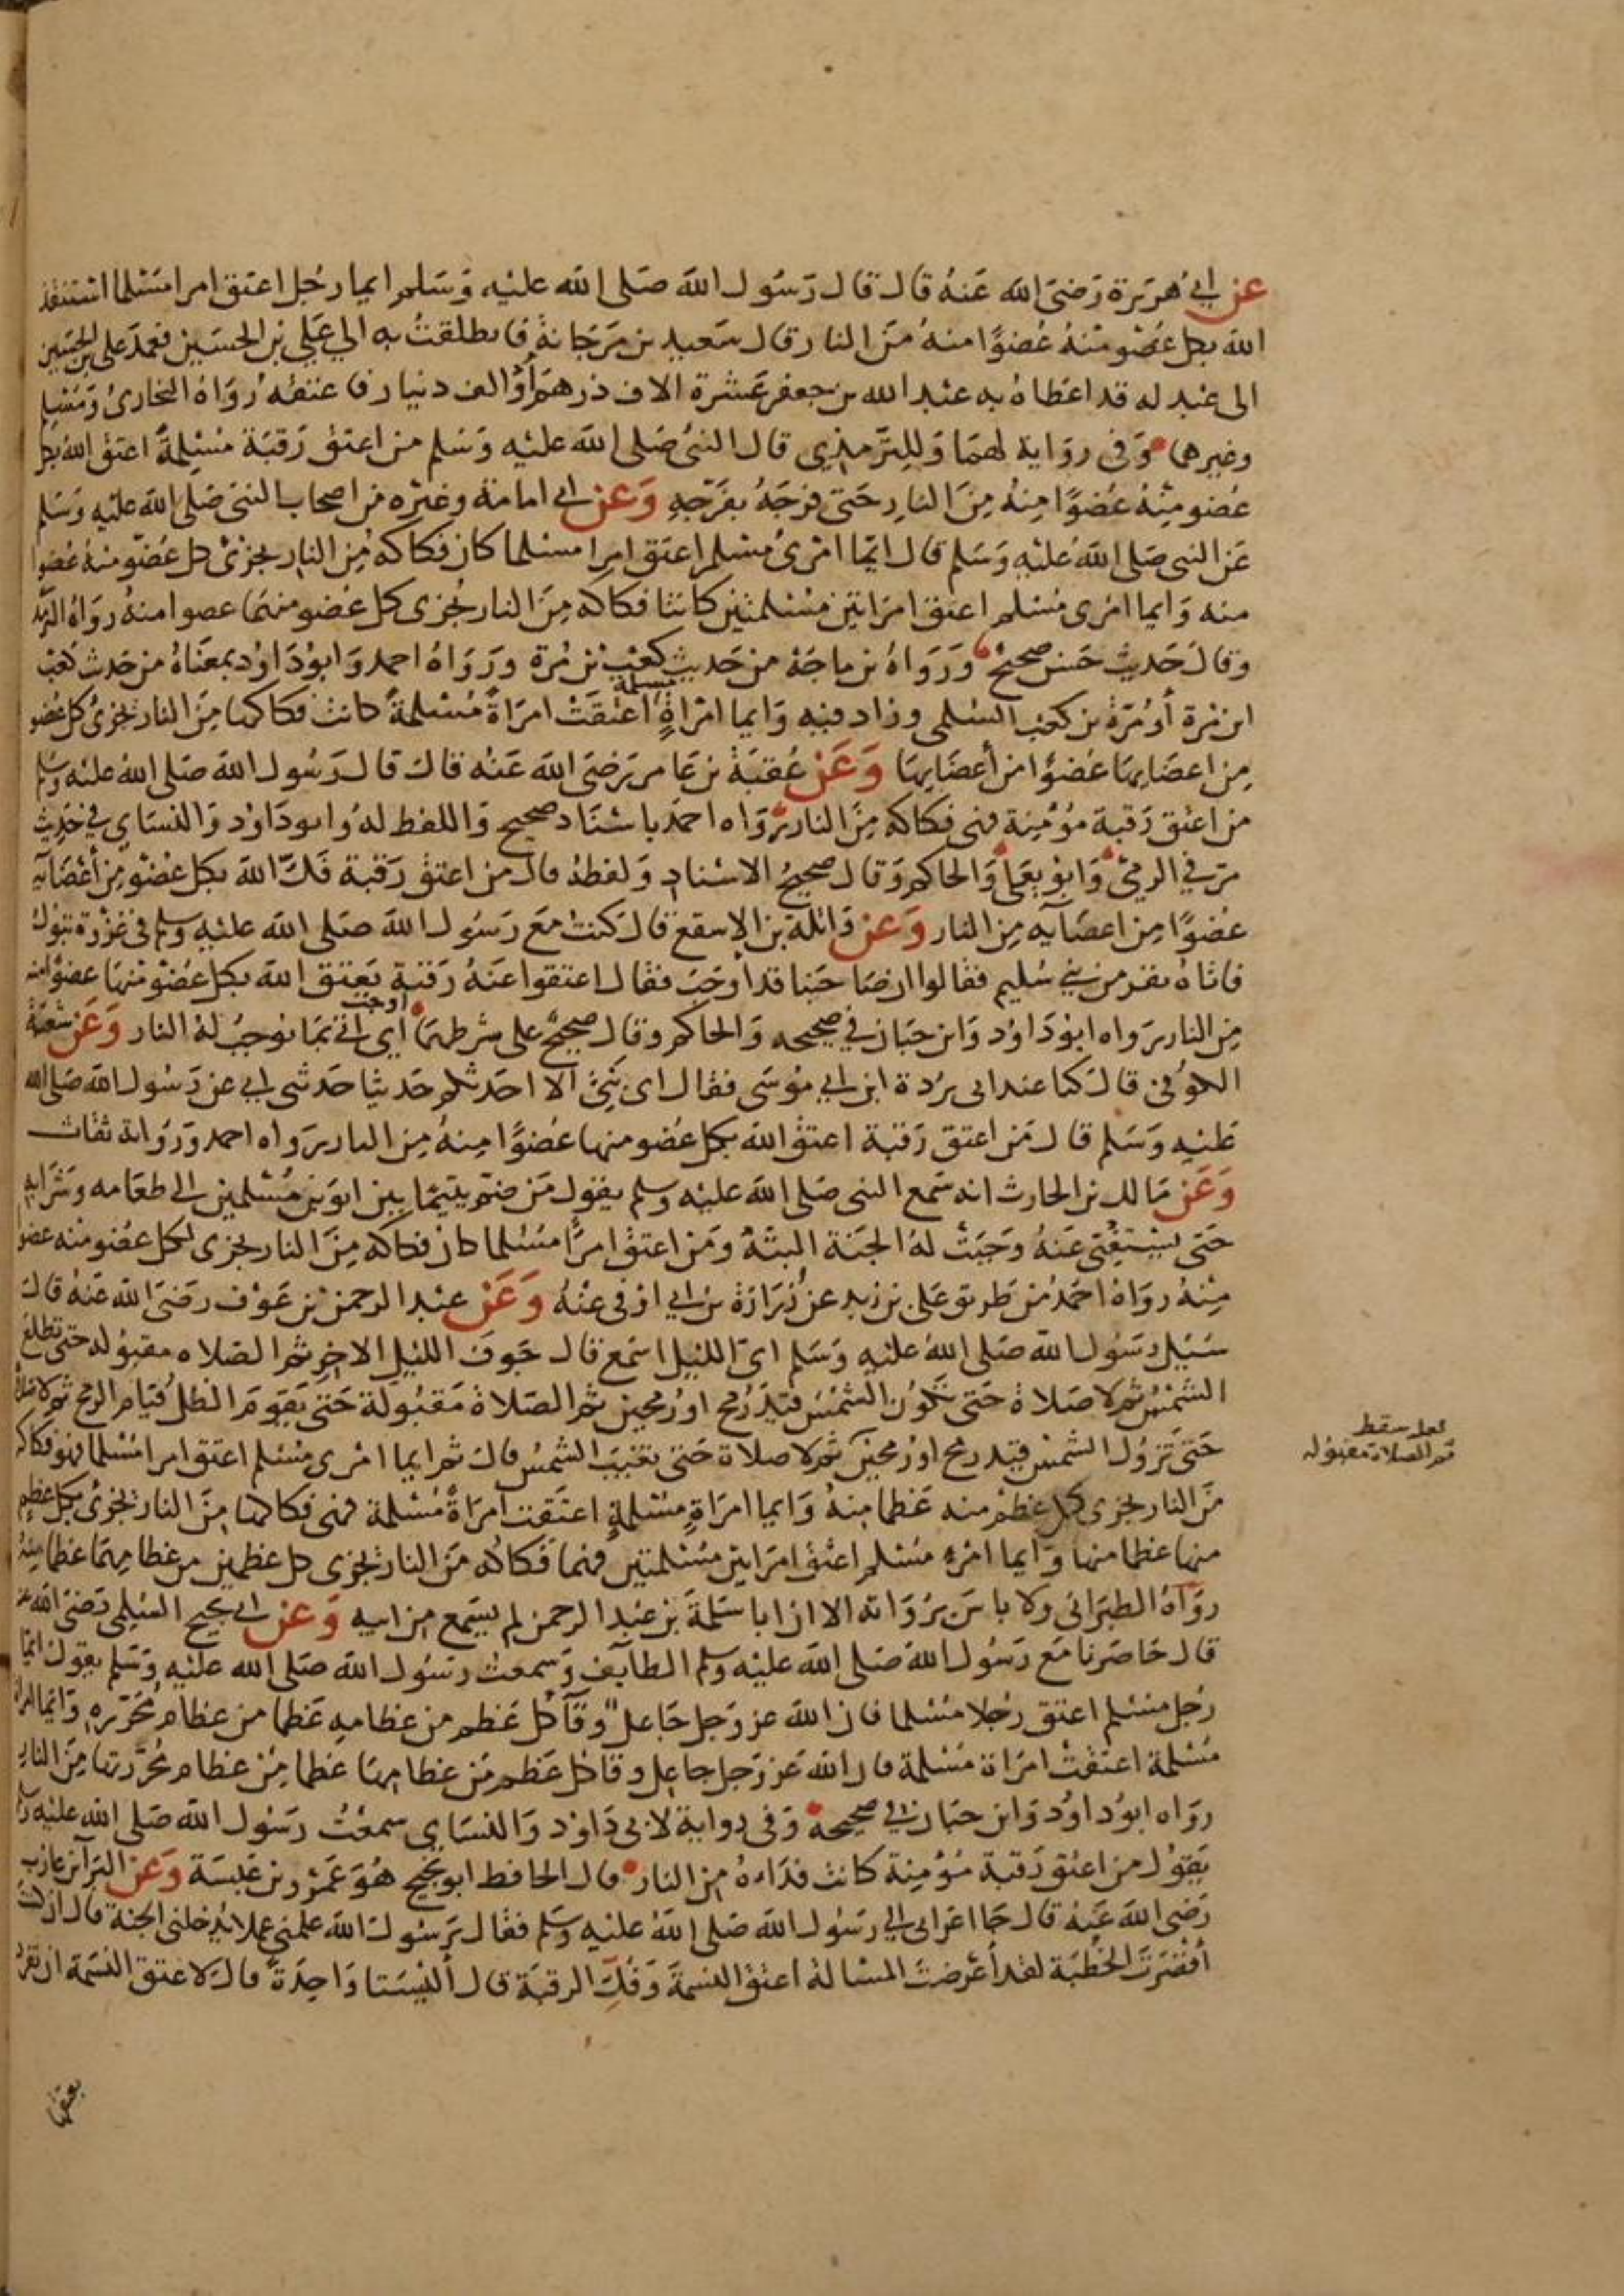 عن ابي هريرة رضي الله عنه قال قال رسول الله صلى الله عليه وسلم ايما رجل اعتق امرا مسلما استنقذ
الله بكل عضو منه عضوا منه من النار قال سعيد بن مرجانة فانطلقت به الي علي بن الحسين فعمد علي بن الحسين
الى عبد له قد اعطاه به عبد الله بن جعفر عشرة الاف درهم أو الف دينار فاعتقه رواه البخاري ومسلم
وغيرهما وفي رواية لهما وللترمذي قال النبي صلى الله عليه وسلم من اعتق رقبة مسلمة اعتق الله بكل
عضو منه عضوا منه من النار حتى فرجه بفرجه وعن ابي امامة وغيره من اصحاب النبي صلى الله عليه وسلم
عن النبي صلى الله عليه وسلم قال ايما امرئ مسلم اعتق امرا مسلما كان فكاكه من النار يجزئ كل عضو منه عضوا
منه وايما امرى مسلم اعتق امراتين مسلمتين كانتا فكاكه من النار يجزى كل عضو منهما عضوا منه رواه الترمذي
وقال حديث حسن صحيح ورواه بن ماجة من حديث كعب بن مرة ورواه احمد وابو داود بمعناه من حديث كعب
ابن مرة أو مرة بن كعب السلمي وزاد فيه وايما امراة مسلمة اعتقت امراة مسلمة كانت فكاكها من النار يجزئ كل عضو
من اعضايها عضوا من أعضايها وعن عقبة بن عامر رضي الله عنه قال قال رسول الله صلى الله عليه وسلم
من اعتق رقبة مؤمنة فهي فكاكه من النار رواه احمد باسناد صحيح واللفظ له وابو داود والنساي في حديث
مر في الرمي وابو يعلى والحاكم وقال صحيح الاسناد ولفظه قال من اعتق رقبة فك الله بكل عضو من أعضآيه
عضوا من اعضآيه من النار وعن واثلة بن الاسقع قال كنت مع رسول الله صلى الله عليه وسلم في غزوة تبوك
فاتاه نفر من بني سليم فقالوا ان صاحبنا قد أوجب فقال اعتقوا عنه رقبة يعتق الله بكل عضو منها عضوا منه
من النار رواه ابو داود وابن حبان في صحيحه والحاكم وقال صحيح على شرطهما اوجب أي اتى بما يوجب له النار وعن شعبة
الكوفي قال كنا عند ابي بردة ابن ابي موسى فقال اى بني الا احدثكم حديثا حدثني ابي عن رسول الله صلى الله
عليه وسلم قال من اعتق رقبة اعتق الله بكل عضو منها عضوا منه من النار رواه احمد ورواته ثقات
وعن مالك بن الحارث انه سمع النبي صلى الله عليه وسلم يقول من ضم يتيما بين ابوين مسلمين الى طعامه وشرابه
حتى يستغني عنه وجبت له الجنة البتة ومن اعتق امرأ مسلما كان فكاكه من النار يجزى لكل عضو منه عضوا
منه رواه احمد من طريق على بن زيد عن زرارة بن ابي اوفى عنه وعن عبد الرحمن بن عوف رضي الله عنه قال
سئيل رسول الله صلى الله عليه وسلم اى الليل اسمع قال جوف الليل الاخر ثم الصلاه مقبوله حتى تطلع
الشمس ثم لا صلاة حتى تكون الشمس قيد رمح او رمحين ثم الصلاة مقبولة حتى يقوم الظل قيام الرمح ثم لا صلاة
حتى تزول الشمس قيد رمح او رمحين ثم لا صلاة حتى تغيب الشمس قال ثم ايما امرى مسلم اعتق امرا مسلما فهو فكاكه
من النار يجزى كل عظم منه عظما منه وايما امراة مسلمة اعتقت امراة مسلمة فهى فكاكها من النار يجزئ بكل عظم
منها عظما منها وايما امرء مسلم اعتق امراتين مسلمتين فهما فكاكه من النار يجزى كل عظمين من عظامهما عظما منه
رواه الطبراني ولا باس برواته الا ان ابا سلمة بن عبد الرحمن لم يسمع من ابيه وعن ابي نجيح السلمي رضي الله عنه
قال حاصرنا مع رسول الله صلى الله عليه وسلم الطآيف وسمعت رسول الله صلى الله عليه وسلم يقول ايما
رجل مسلم اعتق رجلا مسلما فان الله عز وجل جاعل وقآ كل عظم من عظامه عظما من عظام محرره وايما امراة
مسلمة اعتقت امراة مسلمة فان الله عز وجل جاعل وقا كل عظم من عظامها عظما من عظام محررتها من النار
رواه ابو داود وابن حبان في صحيحه وفي رواية لابي داود والنساي سمعت رسول الله صلى الله عليه وسلم
يقول من اعتق رقبة مؤمنة كانت فداءه من النار قال الحافظ ابو نجيح هو عمرو بن عبسة وعن البرآ بن عازب
رضي الله عنه قال جا اعرابي الي رسول الله صلى الله عليه وسلم فقال يرسول الله علمني عملا يدخلني الجنة قال ان كنت
أقصرت الخطبة لقد أعرضت المسالة اعتق النسمة وفك الرقبة قال أليستا واحدة قال لا عتق النسمة ان تفرد
بعتقها
لعل سقط
ثم الصلاة مقبوله